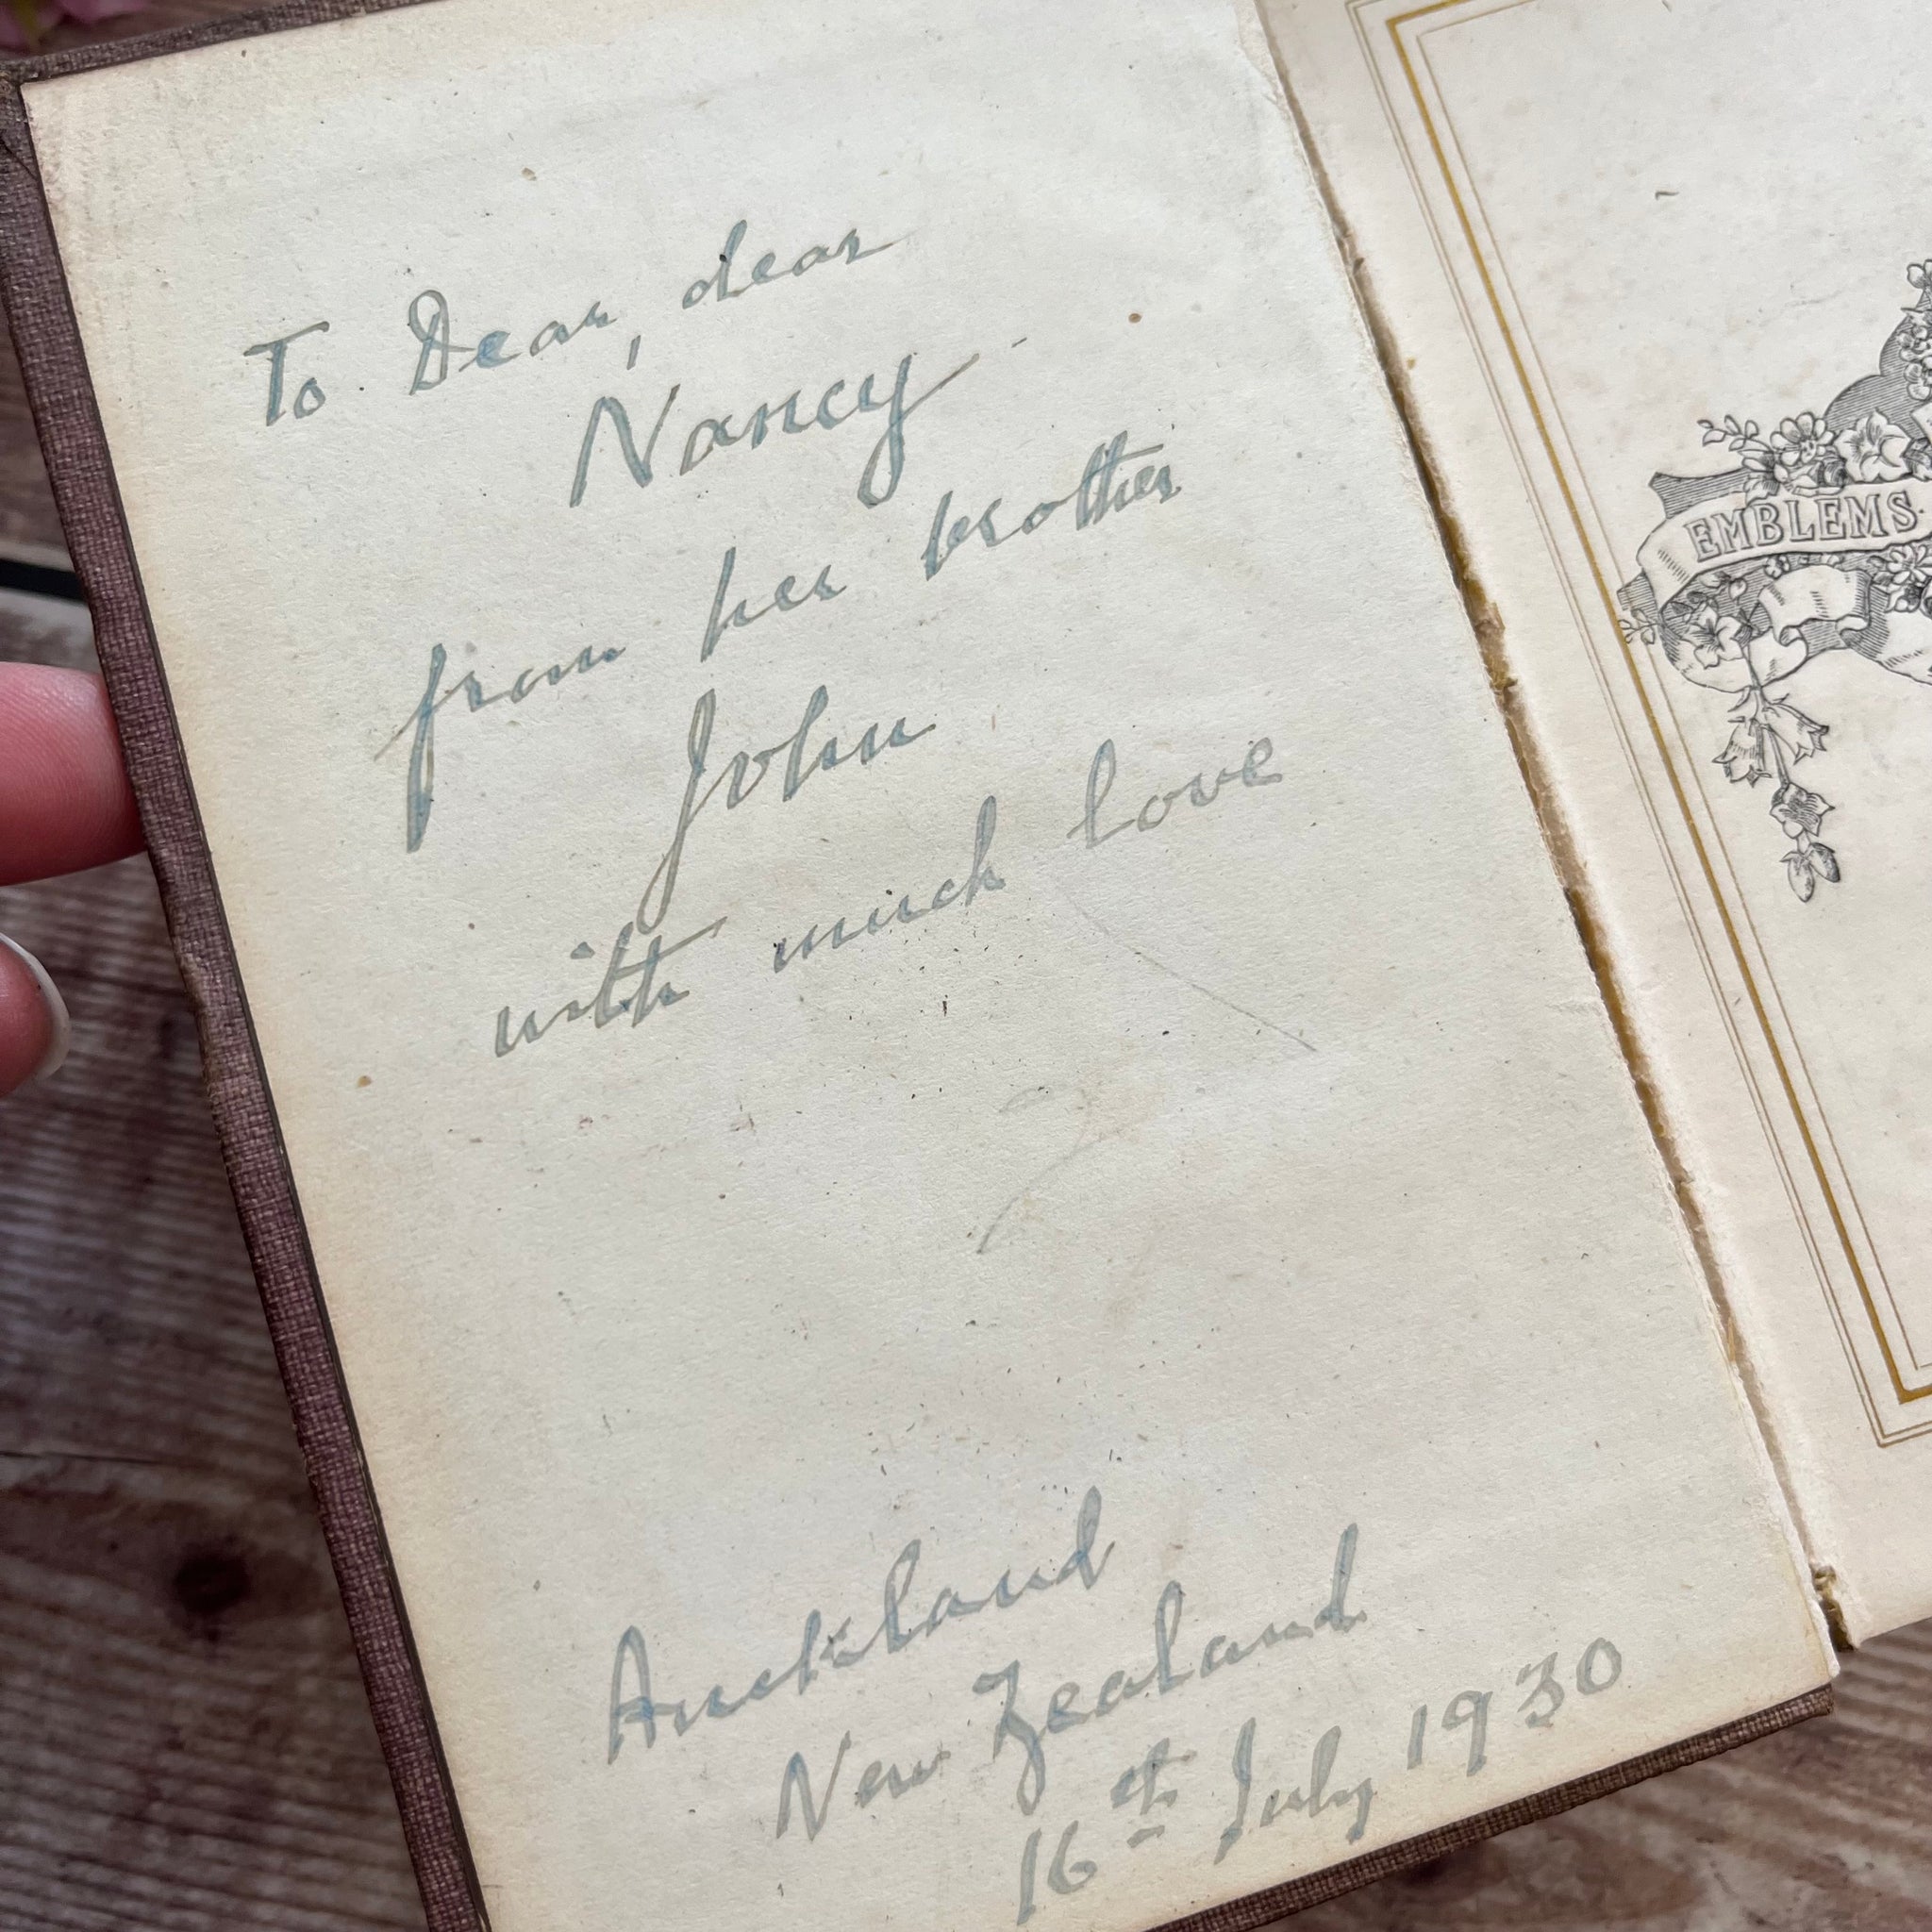 To Dear, dear
Nancy
from her brother
John
with much love
Auckland
New Zealand
16th July 1930
EMBLEMS